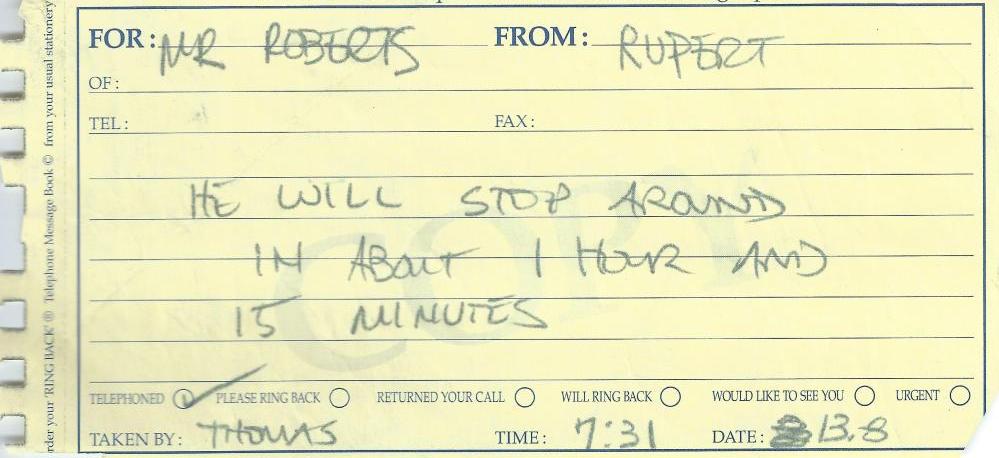 FOR: MR ROBERTS FROM: RUPERT
OF:
TEL: FAX:
HE WILL STOP AROUND
IN ABOUT 1 HOUR AND
15 MINUTES
TELEPHONED PLEASE RING BACK RETURNED YOUR CALL WILL RING BACK WOULD LIKE TO SEE YOU URGENT
TAKEN BY: THOMAS TIME: 7:31 DATE: 13.8
COPY
rder your 'RING BACK' ® Telephone Message Book © from your usual stationery